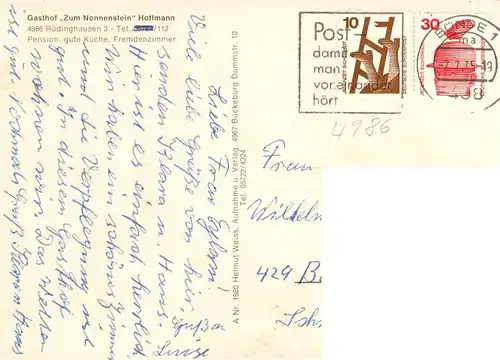 Gasthof „Zum Nonnenstein" Hoffmann
4986 Rödinghausen 3 - Tel. /112
Pension, gute Küche, Fremdenzimmer
Liebe Frau
viele liebe Grüße von hier,
senden Klara u. Hans.
Hier ist es einfach herrlich
wir haben ein schönes Zimmer
und die Verpflegung ist
gut. In diesem Gasthof
wohnen wir. Das Wetter
ist gut. Nochmals Gruß Klara Hans
Grüße an
Luise
A Nr. 1560 Helmut Weiss, Aufnahme u. Verlag, 4967 Bückeburg Dammstr. 10
Tel. 05722/4324
Post -
damit
man
voreinander
hört
10
30
BÜNDE 1
ma
-7.7.75-19
498
4986
Frau
Wilhelm
429 B